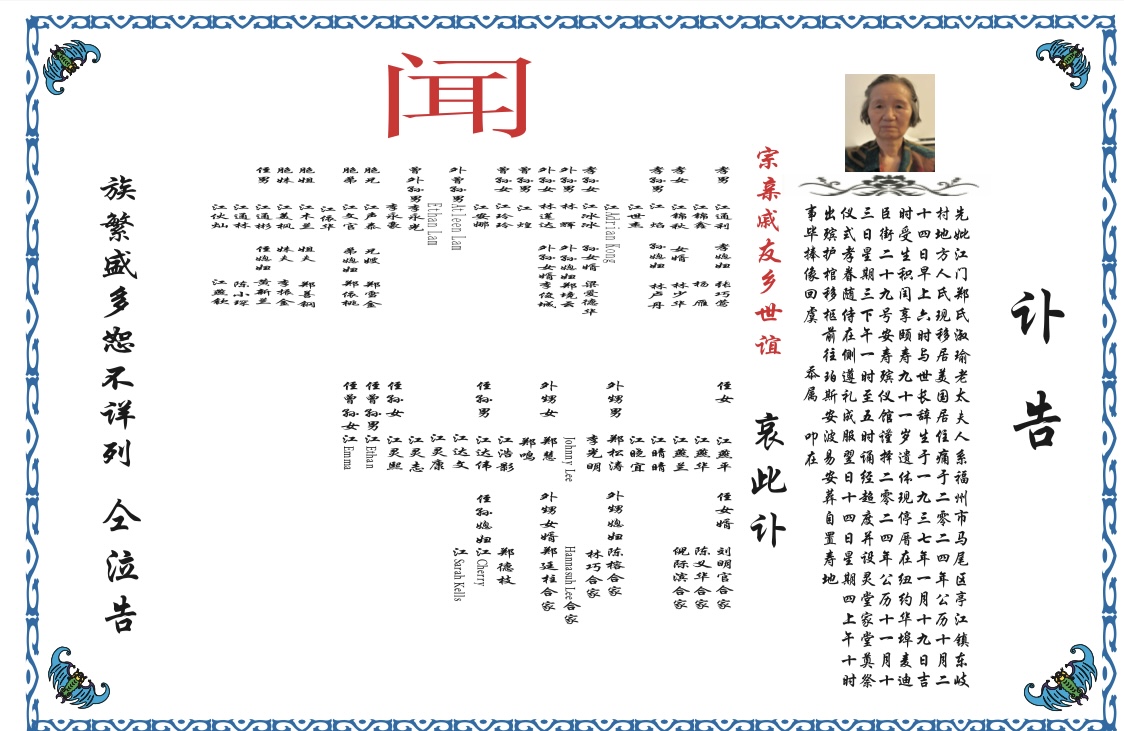 讣告
先妣江门郑氏淑瑜老太夫人系福州市马尾区亭江镇东岐
村地方人氏现移居美国居住痛于二零二四年公历十月二
十四日早上六时与世长辞生于一九三七年一月十九日吉
时受生积闰享颐寿九十一岁遗体现停厝在纽约华埠麦迪
臣街二十九号安寿殡仪馆谨择二零二四年公历十一月十
三日星期三下午一时至五时诵经超度并设灵堂家堂奠祭
仪式孝眷随侍在侧遵礼成服翌日十四日星期四上午十时
出殡护棺移柩前往珀斯安波易安葬自置寿地
事毕捧像回虞 忝属 叩在
宗亲戚友乡世谊 哀此讣
闻
孝男 江通利 孝媳妇 张巧莺
江锦鑫 杨雁
孝女 江锦秋 女婿 林少华
孝孙男 江焰 孙媳妇 林卢丹
江世
江Adrian Kong
孝孙女 江冰冰 孙女婿 梁爱德华
外孙男 林辉 外孙媳妇 郑境云
外孙女 林莲达 外孙女婿 李俊城
曾孙男 江煌
曾孙女 江玲玲
江安娜
外曾孙男 At leen Lam
Ethan Lam
曾外孙男 李永光
李永豪
胞兄 江声泰 兄嫂 郑雪金
胞弟 江文官 弟媳妇 郑依桃
江依华
胞姐 江木兰 姐夫 郑善钢
胞妹 江美枫 妹夫 李振金
侄男 江通彬 侄媳妇 黄新兰
江通林 陈小琛
江伙灿 江燕钦
侄女 江燕平 侄女婿 刘明官合家
江燕华 陈义华合家
江燕兰 倪际滨合家
江晴晴
江晓宜
外甥男 郑松涛 外甥媳妇 陈榕合家
李光明 林巧合家
Johnny Lee Hannasuh Lee合家
外甥女 郑慧 外甥女婿 郑廷柱合家
郑鸣
江浩影 郑德枝
侄孙男 江达伟 侄孙媳妇 江Cherry
江达文 江Sarah Kells
江灵康
江灵志
侄孙女 江灵熙
侄曾孙男 江Ethan
侄曾孙女 江Emma
族繁盛多恕不详列 仝泣告